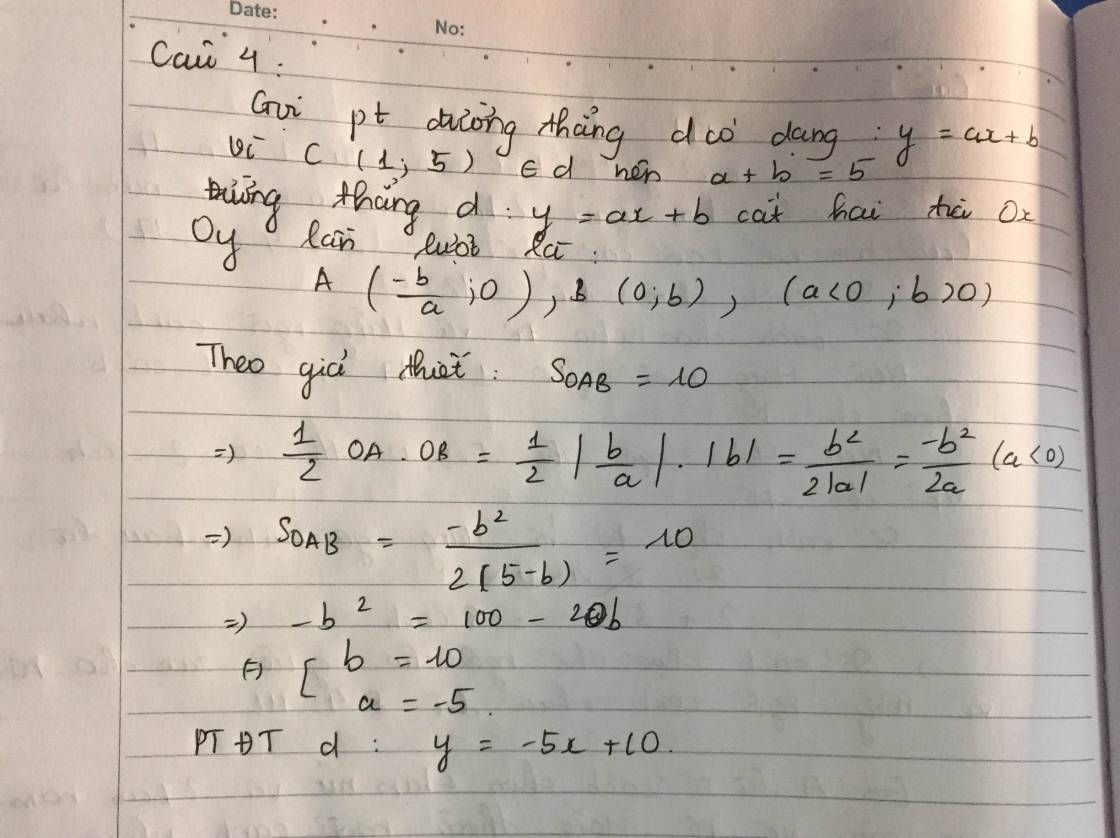 Date:
No:
Câu 4 :
Gọi pt đường thẳng d có dạng : y = ax + b
Vì C (1; 5) ∈ d nên a + b = 5
Đường thẳng d : y = ax + b cắt hai tia Ox
Oy lần lượt là :
A (-b/a ; 0), B (0; b), (a<0 ; b>0)
Theo giả thiết : SOAB = 10
=> 1/2 OA . OB = 1/2 |b/a| . |b| = b²/2|a| = -b²/2a (a<0)
=> SOAB = -b²/2(5-b) = 10
=> -b² = 100 - 20b
<=> [ b = 10
a = -5.
PT ĐT d : y = -5x + 10.